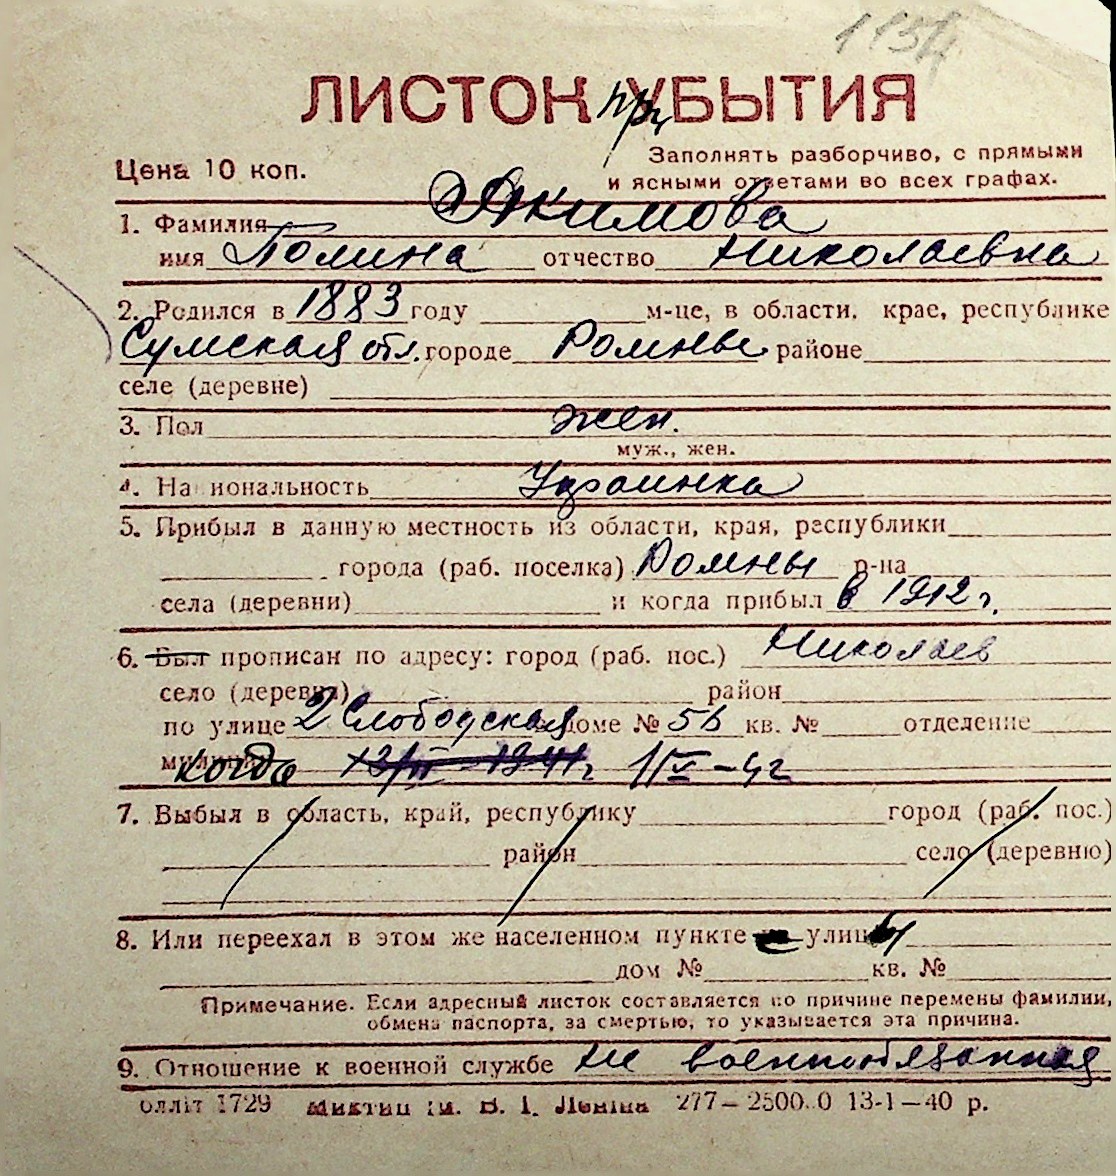 1154
ЛИСТОК при УБЫТИЯ
Цена 10 коп.
Заполнять разборчиво, с прямыми
и ясными ответами во всех графах.
1. Фамилия Акимова
имя Полина отчество Николаевна
2. Родился в 1883 году м-це, в области, крае, республике
Сумская обл. городе Ромны районе
селе (деревне)
3. Пол жен.
муж., жен.
4. На иональность Украинка
5. Прибыл в данную местность из области, края, республики
города (раб. поселка) Ромны р-на
села (деревни) и когда прибыл в 1912 г.
6. Был прописан по адресу: город (раб. пос.) Николаев
село (деревня) район
по улице 2 Слободская доме № 5Б кв. № отделение
когда 1/IX-42
7. Выбыл в область, край, республику город (раб. пос.)
район село (деревню)
8. Или переехал в этом же населенном пункте улицы
дом № кв. №
Примечание. Если адресный листок составляется по причине перемены фамилии,
обмена паспорта, за смертью, то указывается эта причина.
9. Отношение к военной службе не военнообязанная
олліт 1729 ім. В. І. Леніна 277—2500..0 13-1—40 р.